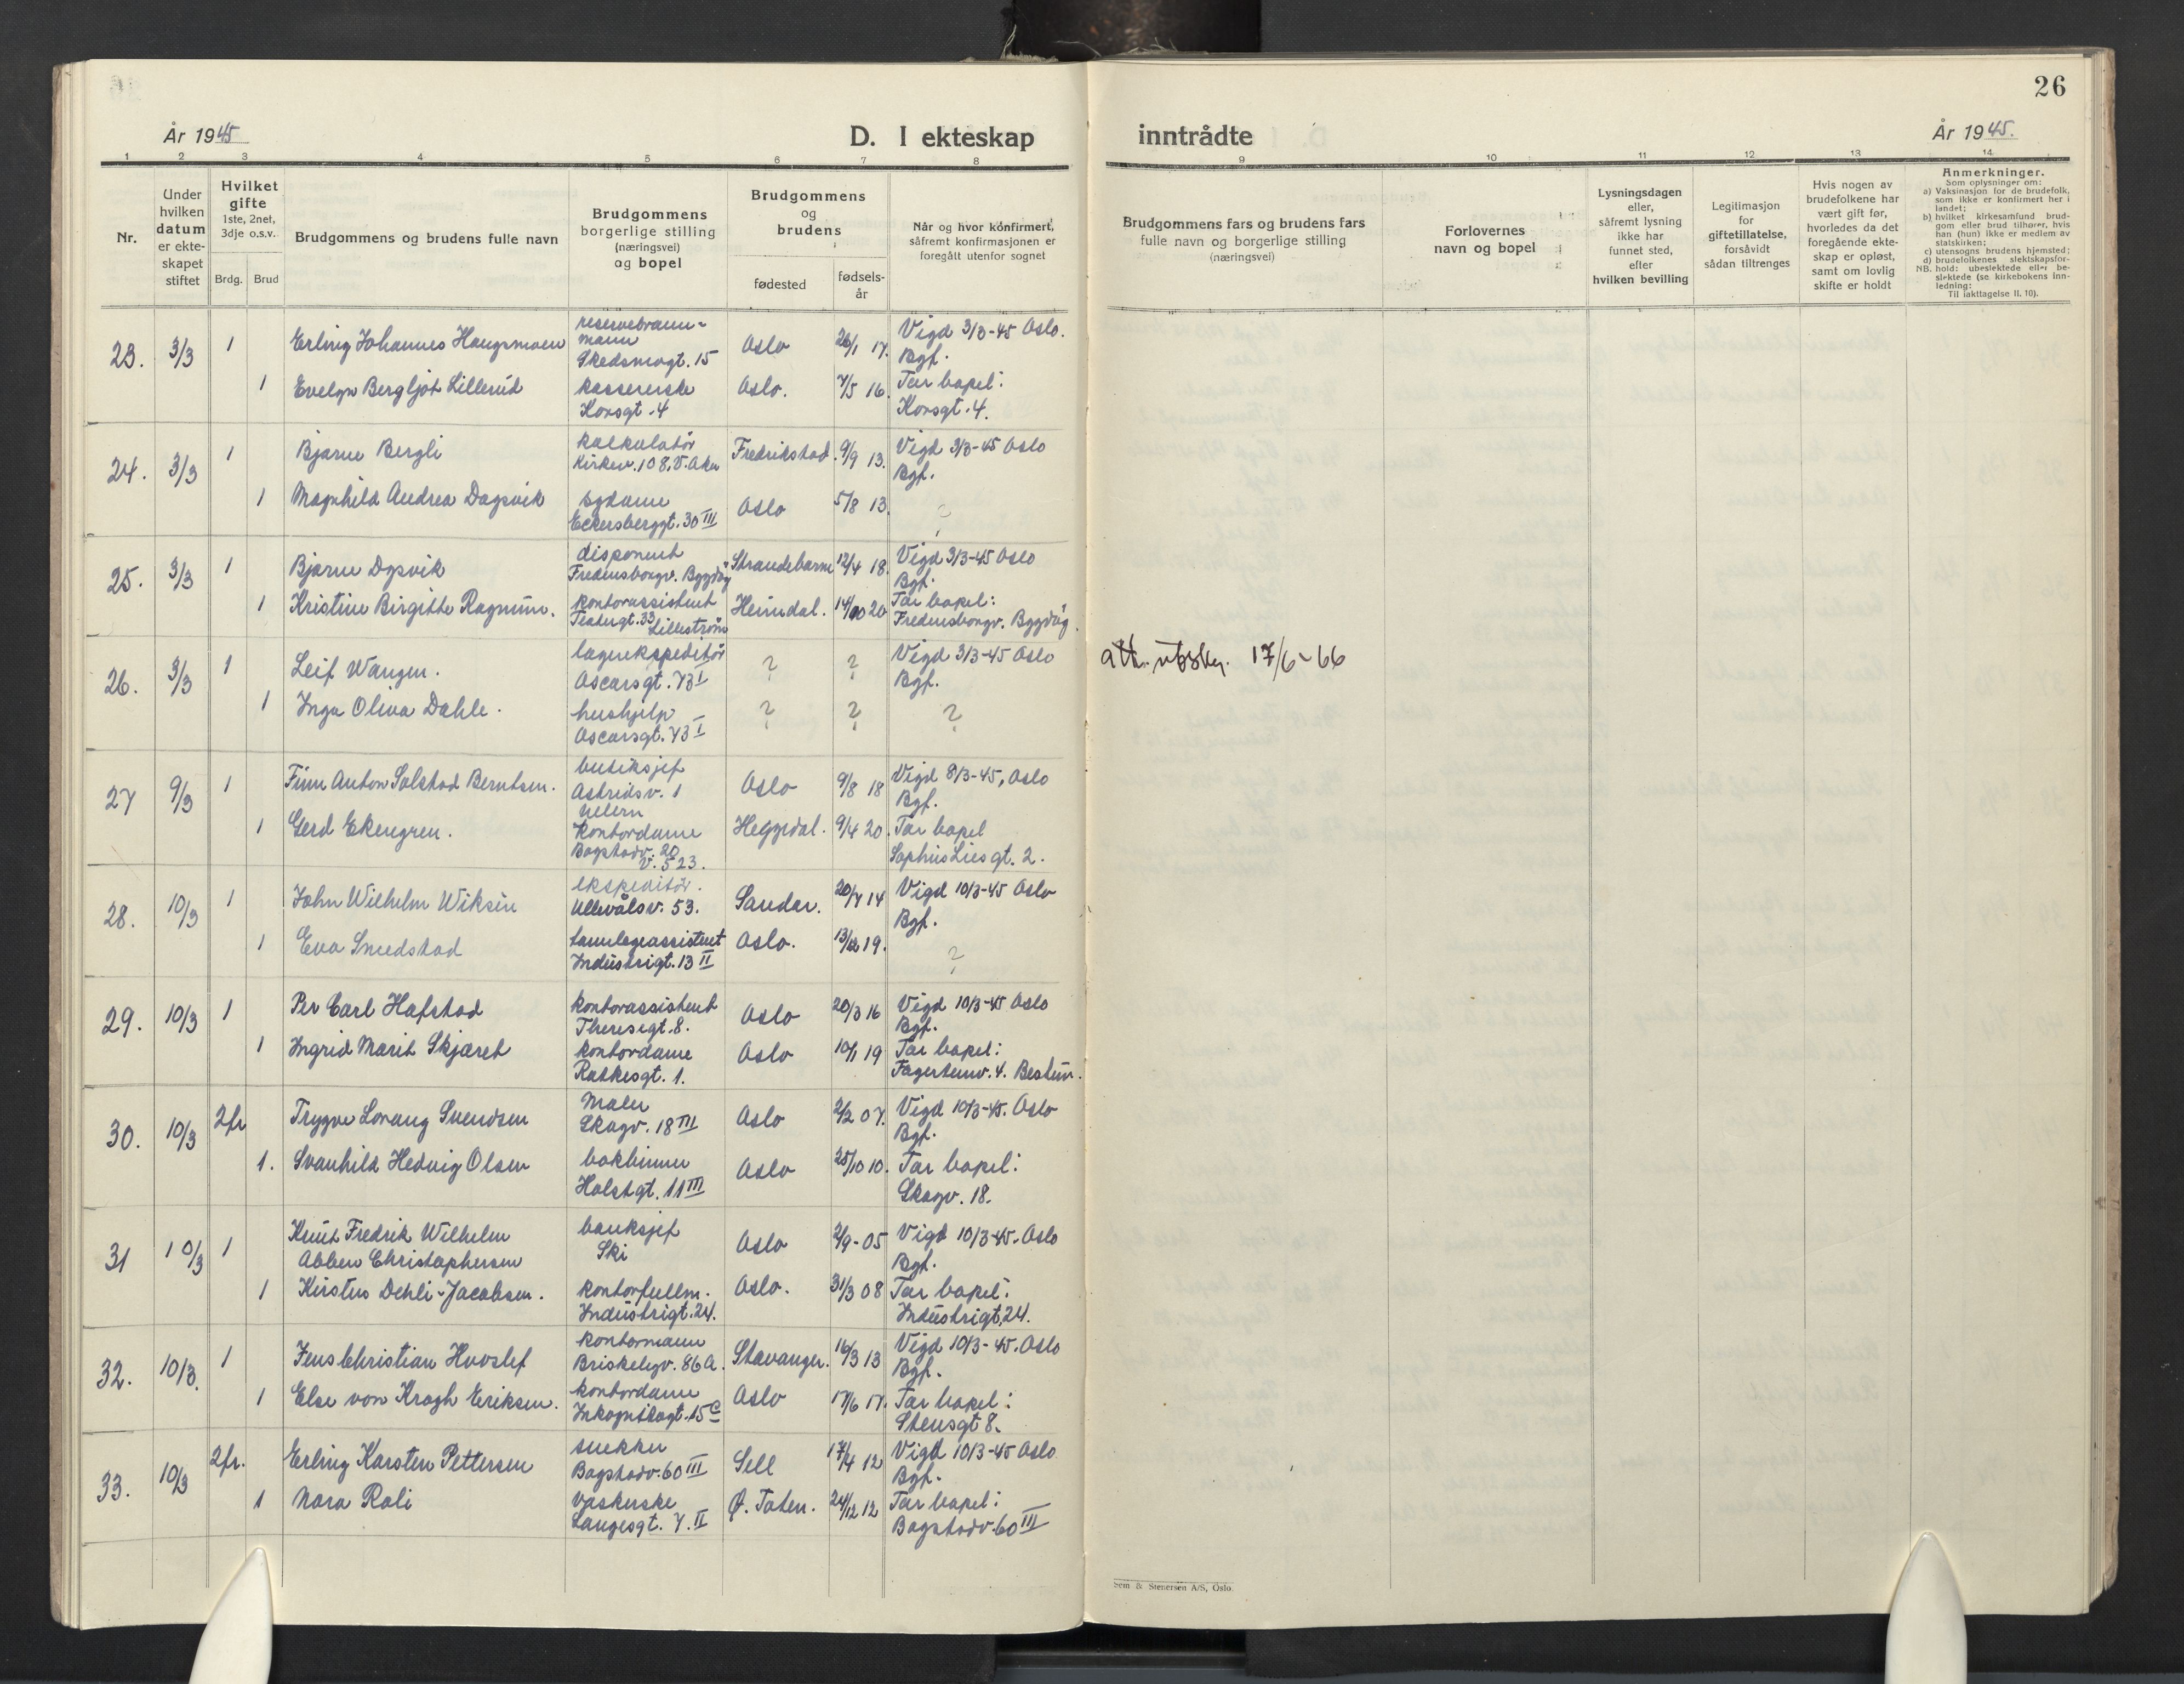 26
År 1945
D. I ekteskap
inntrådte
År 1945.
1 2 3 4 5 6 7 8 9 10 11 12 13 14
Nr.
Under
hvilken
datum
er ekte-
skapet
stiftet
Hvilket
gifte
1ste, 2net,
3dje o.s.v.
Brdg. Brud
Brudgommens og brudens fulle navn
Brudgommens
borgerlige stilling
(næringsvei)
og bopel
Brudgommens
og
brudens
fødested
fødsels-
år
Når og hvor konfirmert,
såfremt konfirmasjonen er
foregått utenfor sognet
Brudgommens fars og brudens fars
fulle navn og borgerlige stilling
(næringsvei)
Forlovernes
navn og bopel
Lysningsdagen
eller,
såfremt lysning
ikke har
funnet sted,
efter
hvilken bevilling
Legitimasjon
for
giftetillatelse,
forsåvidt
sådan tiltrenges
Hvis nogen av
brudefolkene har
vært gift før,
hvorledes da det
foregående ekte-
skap er opløst,
samt om lovlig
skifte er holdt
Anmerkninger.
Som oplysninger om:
a) Vaksinasjon for de brudefolk,
som ikke er konfirmert her i
landet;
b) hvilket kirkesamfund brud-
gom eller brud tilhører, hvis
han (hun) ikke er medlem av
statskirken;
c) utensogns brudens hjemsted;
d) brudefolkenes slektskapsfor-
NB. hold: ubeslektede eller be-
slektede (se kirkebokens inn-
ledning:
Til iakttagelse II. 10).
23. 3/3 1 Erling Johannes Haugsmoen
reservebrann-
mann
Skedsmogt. 15
Oslo 26/1 17.
Vigd 3/3-45 Oslo.
Bgf.
1 Evelyn Bergljot Lillerud
kassererske
Korsgt. 4
Oslo. 7/5 16.
Tar bopel:
Korsgt. 4.
24. 3/3 1 Bjarne Bergli
kalkulatør
Kirkev. 108, V. Aker
Fredrikstad. 9/9 13.
Vigd 3/3-45 Oslo
Bgf.
1 Magnhild Andrea Dagsvik
sydame
Eckersberggt. 30 III
Oslo 5/8 13.
?
25. 3/3 1 Bjarne Dysvik
disponent
Fredensborgv. Bygdøy
Strandebarm 12/4 18.
Vigd 3/3-45 Oslo
Bgf.
1 Kristine Birgitte Ragnum.
kontorassistent
Teatergt. 33 Lillestrøm
Heimdal. 14/10 20
Tar bopel:
Fredensborgv. Bygdøy.
26. 3/3 1 Leif Wangen.
lagerekspeditør
Oscarsgt. 73 I
? ?
Vigd 3/3-45 Oslo
Bgf.
att. utskr. 17/6-66
1 Inga Oliva Dahle.
hushjelp
Oscarsgt. 73 I
? ? ?
27 9/3 1 Finn Anton Solstad Berntsen.
butiksjef
Astridsv. 1
Oslo 9/8 18
Vigd 8/3-45, Oslo
Bgf.
1 Gerd Ekengren.
kontordame
Bogstadv. 20
V. 523.
Heggedal. 9/4 20.
Tar bopel
Sophus Lies gt. 2.
28. 10/3 1 John Wilhelm Wiksin
ekspeditør.
Ullevålsv. 53.
Sandar. 20/7 14
Vigd 10/3-45 Oslo
Bgf.
1 Eva Smedstad
tannlegeassistent
Industrigt. 13 II
Oslo. 13/12 19.
?
29. 10/3 1 Per Carl Hafstad
kontorassistent
Theresegt. 8.
Oslo 20/3 16
Vigd 10/3-45 Oslo
Bgf.
1 Ingrid Marit Skjæret
kontordame
Ratkesgt. 1.
Oslo 10/1 19
Tar bopel:
Fagertunv. 4. Bestun.
30. 10/3 2fr Trygve Lorang Svendsen
Maler
Skogv. 18 III
Oslo 2/2 07.
Vigd 10/3-45. Oslo
Bgf.
1. Svanhild Hedvig Olsen
bokbinner
Holstgt. 11 III
Oslo 25/10 10.
Tar bopel:
Skogv. 18.
31 10/3 1 Knut Fredrik Wilhelm
Abben Christophersen
banksjef
Ski
Oslo 2/9-05
Vigd 10/3-45. Oslo
Bgf.
1 Kirsten Dehli-Jacobsen.
kontorfullm.
Industrigt. 24.
Oslo. 31/3 08
Tar bopel:
Industrigt. 24.
32. 10/3. 1 Jens Christian Hvoslef
kontormann
Briskebyv. 86 A.
Stavanger. 16/3 13
Vigd 10/3-45. Oslo
Bgf.
1 Else von Krogh Eriksen.
kontordame
Inkognitogt. 15 C
Oslo 17/6 17.
Tar bopel:
Stensgt 8.
33. 10/3 2fr. Erling Karsten Pettersen
snekker
Bogstadv. 60 III
Sell 17/4 12
Vigd 10/3-45 Oslo
Bgf.
1 Nora Roli
vaskerske
Langesgt. 7. II
Ø. Toten. 24/12 12
Tar bopel:
Bogstadv. 60 III
Sem & Stenersen A/S, Oslo.